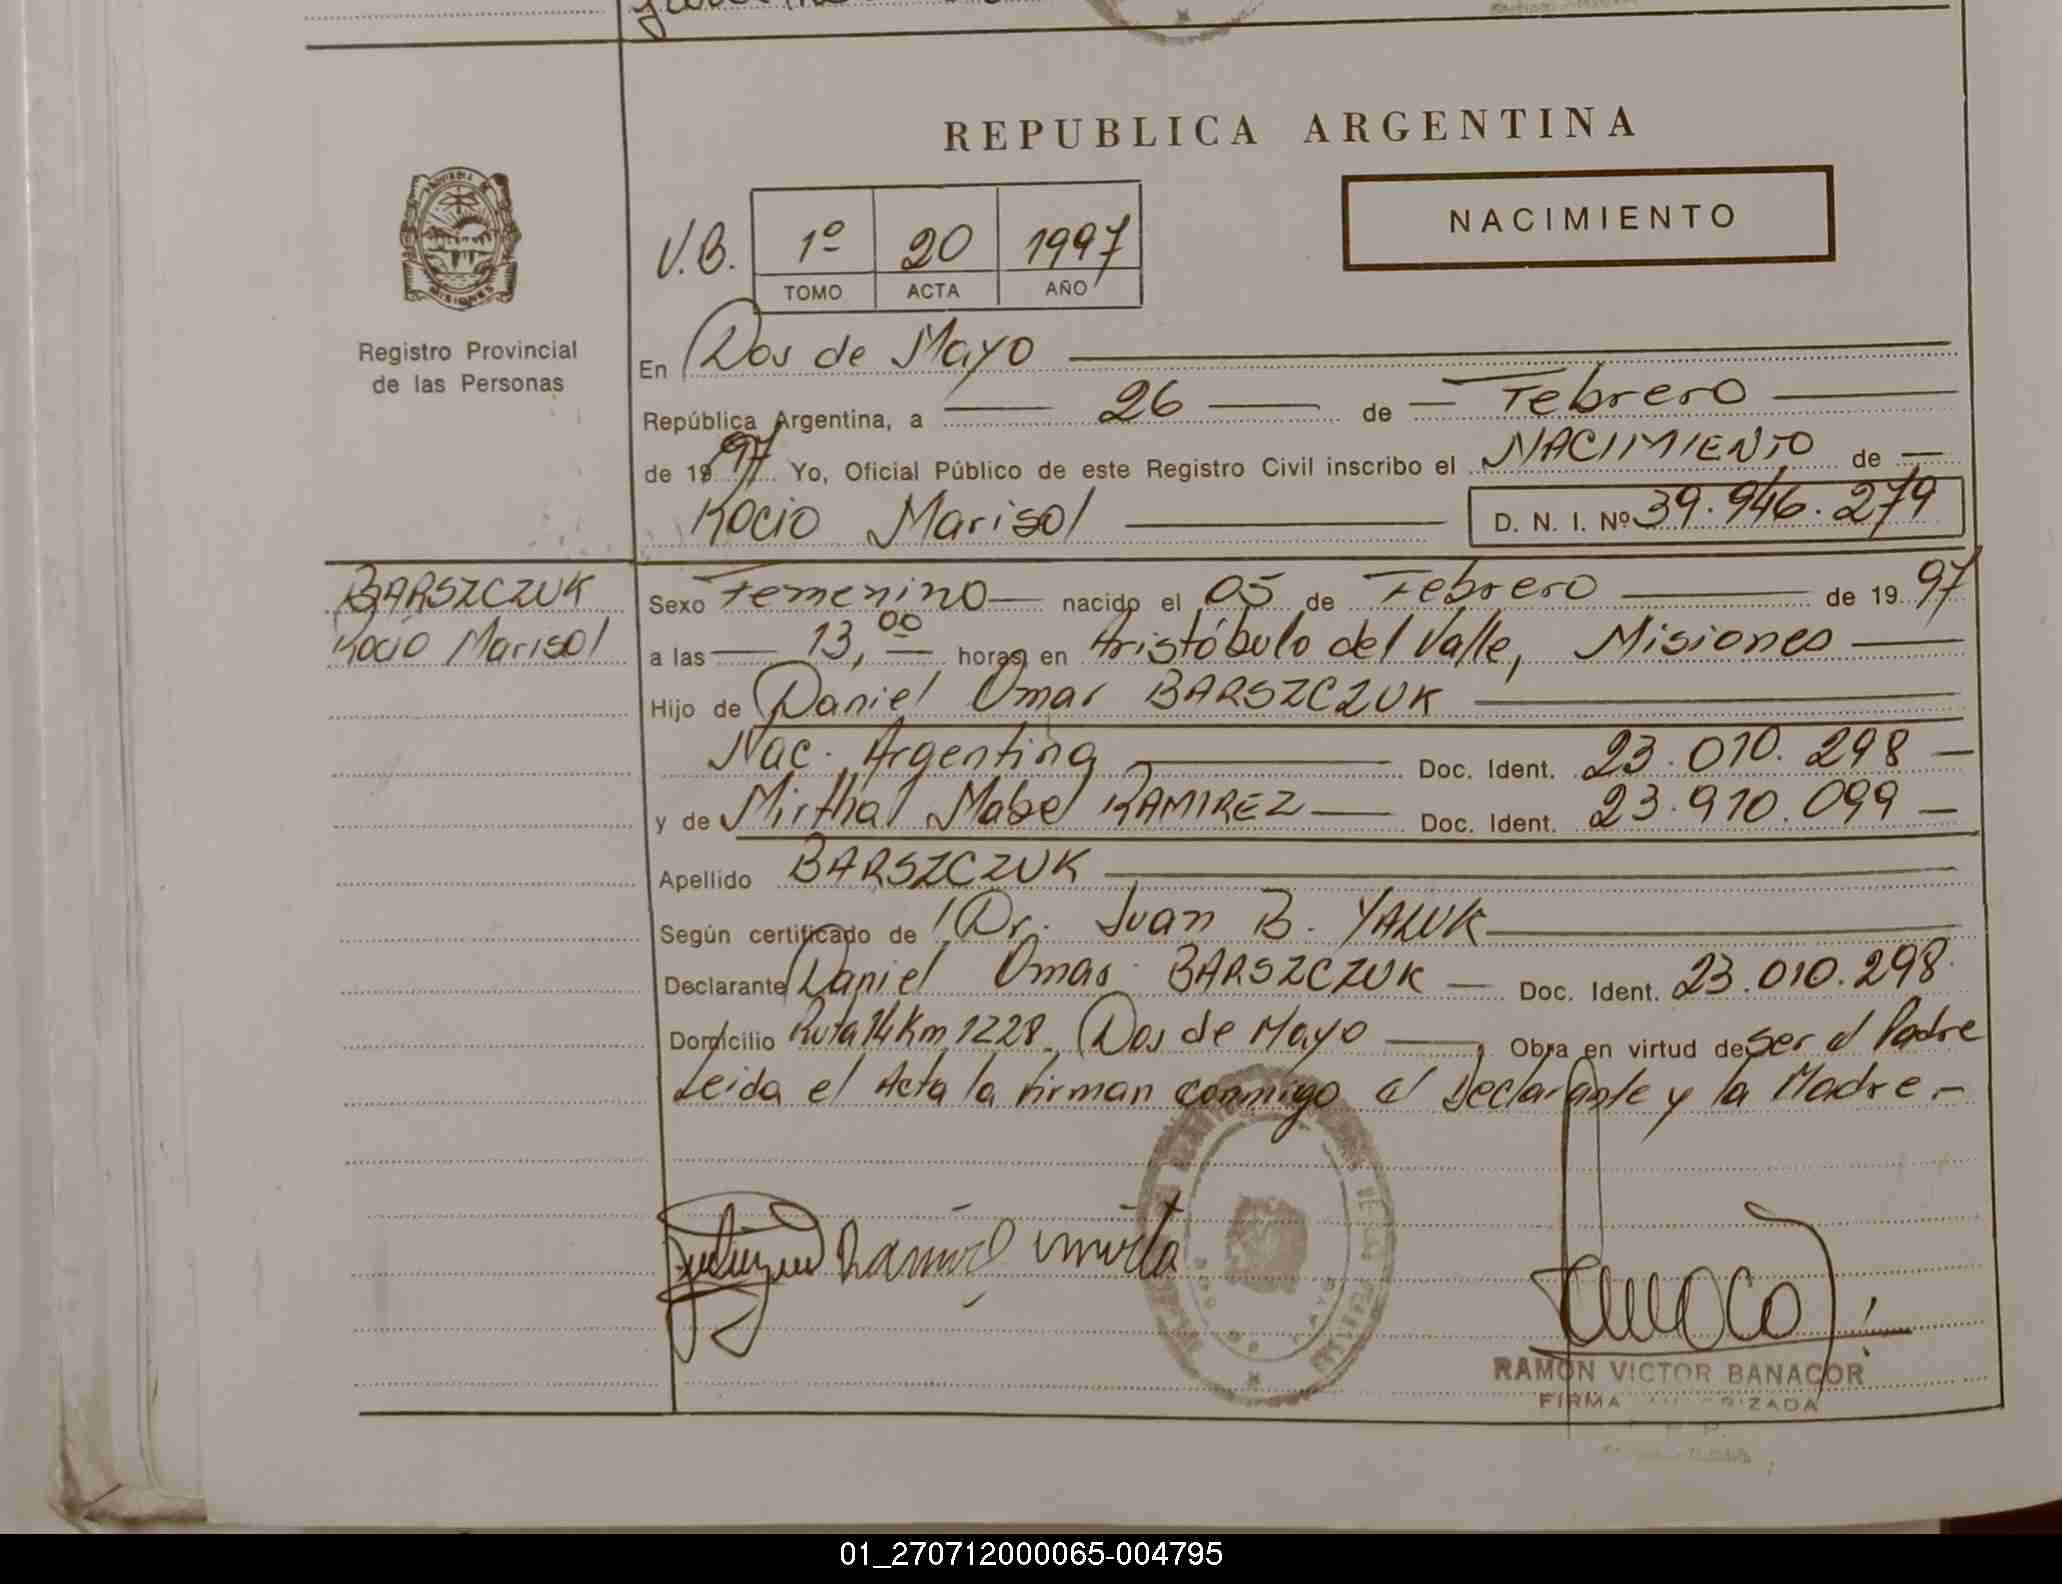 REPUBLICA ARGENTINA
NACIMIENTO
V.B. 1º 20 1997
TOMO ACTA AÑO
MISIONES
Registro Provincial
de las Personas
En Dos de Mayo
República Argentina, a 26 de Febrero
de 1997 Yo, Oficial Público de este Registro Civil inscribo el NACIMIENTO de
Rocio Marisol D. N. I. Nº 39.946.279
BARSZCZUK
Rocio Marisol
Sexo Femenino nacido el 05 de Febrero de 1997
a las 13,00 horas, en Aristóbulo del Valle, Misiones
Hijo de Daniel Omar BARSZCZUK
Nac. Argentina Doc. Ident. 23.010.298
y de Mirtha Mabel RAMIREZ Doc. Ident. 23.910.099
Apellido BARSZCZUK
Según certificado de Dr. Juan B. YALUK
Declarante Daniel Omar BARSZCZUK Doc. Ident. 23.010.298.
Domicilio Ruta 14 Km 1228. Dos de Mayo, Obra en virtud de ser el Padre
Leida el Acta la firman conmigo el Declarante y la Madre.-
RAMON VICTOR BANACOR
FIRMA
01_270712000065-004795